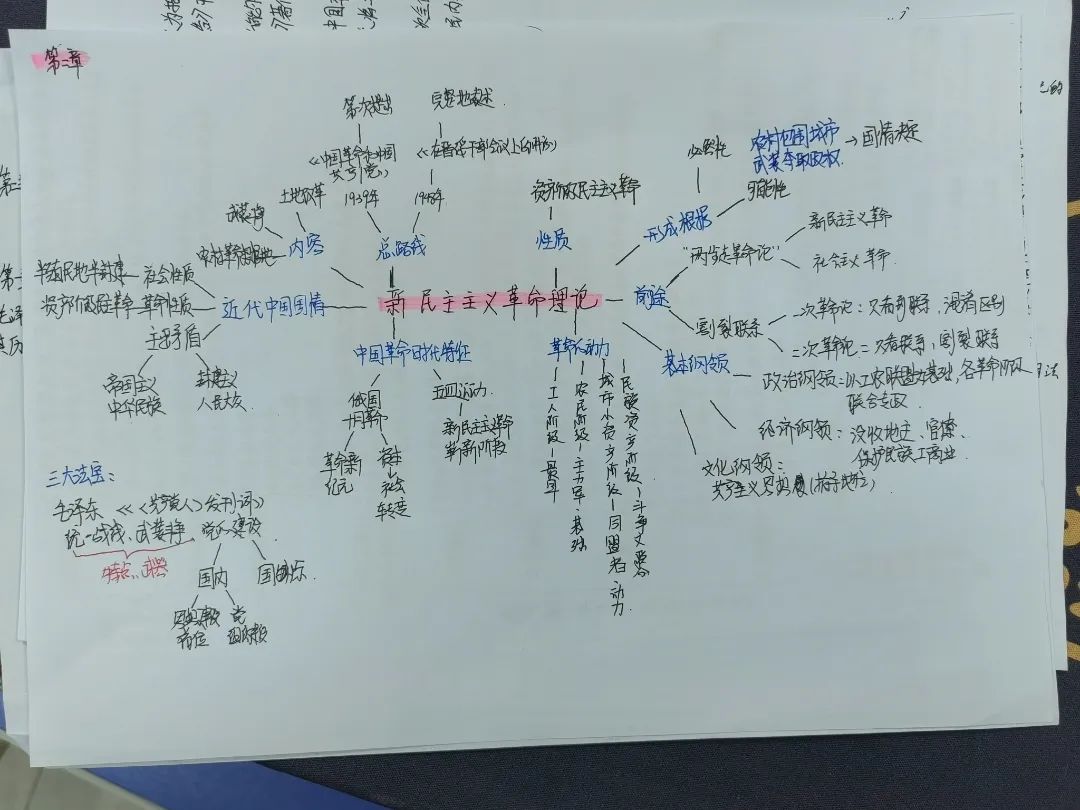 第二章
第一次提出
完整地表述
《中国革命和中国
共产党》
《在晋绥干部会议上的讲话》
1939年
1948年
土地改革
武装斗争
农村革命根据地
内容
总路线
资产阶级民主主义革命
性质
必要性
农村包围城市
武装夺取政权
→国情决定
可能性
形成根据
半殖民地半封建
社会性质
资产阶级民主革命
革命性质
近代中国国情
主要矛盾
帝国主义
中华民族
封建主义
人民大众
新民主主义革命理论
前途
"两步走革命论"
新民主主义革命
社会主义革命
割裂联系
一次革命论:只看到联系,混淆区别
二次革命论:只看联系,割裂联系
基本纲领
政治纲领:以工农联盟为基础,各革命阶级
联合专政
经济纲领:没收地主、官僚,
保护民族工商业.
文化纲领:
中国革命时代特征
俄国
十月革命
革命新
纪元
资本
社会
转变
五四运动
新民主主义革命
崭新阶段
革命的动力
工人阶级—最
农民阶级—主力军、基础
城市小资产阶级—同盟者 动力
民族资产阶级—斗争又联合
三大法宝:
毛泽东《〈共产党人〉发刊词》
统一战线、武装斗争、党的建设
特点、武器
国内
国际